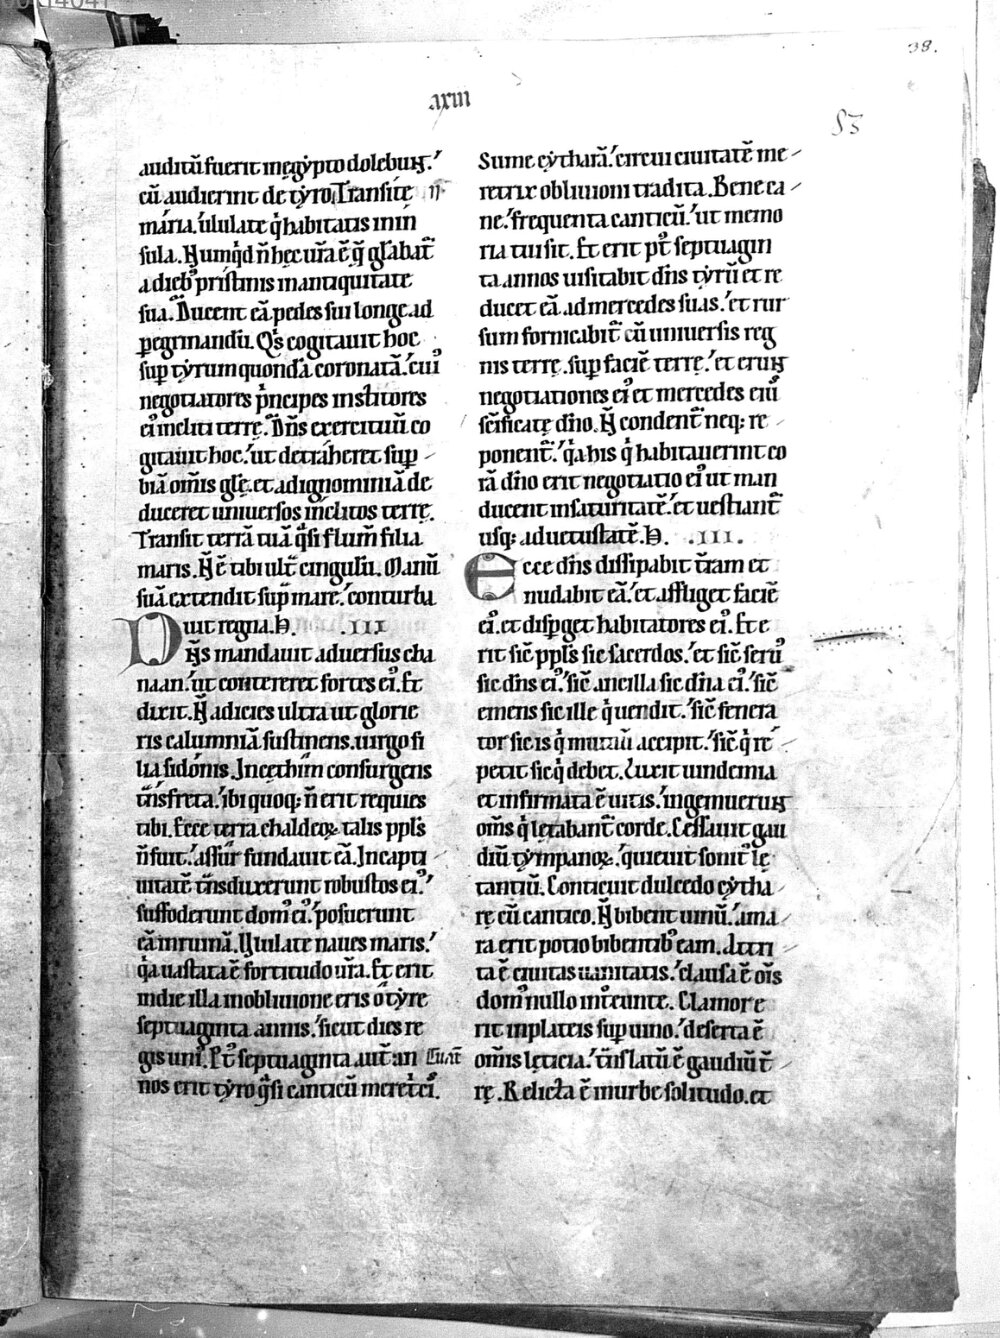 38.
53
auditũ fuerit in egẏpto dolebunt.'
cũ audierint de tẏro. Transite
maria. ululate q̇ habitatis in in
sula. Numq̇d ñ hec ur̃a ẽ q̃ gl̃abat̃
a dieb⁹ pristinis in antiquitate
sua. Ducent eã pedes sui longe ad
ꝑegrinandũ. Qis cogitauit hoc
sup tẏrum quondã coronatã.' cui⁹
negotiatores p̃ncipes institores
ei⁹ incliti terrę. Dñs exercituũ co
gitauit hoc.' ut detraheret sup
biã om̃is gl̃ę. et ad ignominiã de
duceret uniuersos inclitos terrę.
Transi terrã tuã q̃si flum̃ filia
maris. Ñ ẽ tibi ult̃ cingulũ. Manũ
suã extendit sup mare.' conturba
uit regna. .III
Dñs mandauit aduersus cha
naan.' ut contereret fortes ei⁹. Et
dixit. Ñ adicies ultra ut glorie
ris calumniã sustinens. uirgo fi
lia sidonis. In cethim consurgens
t̃nsfreta.' ibi quoq; ñ erit requies
tibi. Ecce terra chaldeoꝝ. talis ppl̃s
ñ fuit.' assur fundauit eã. In capti
uitatẽ t̃nsduxerunt robustos ei⁹.'
suffoderunt dom⁹ ei⁹.' posuerunt
eã in ruinã. Ululate naues maris.'
q̇a uastata ẽ fortitudo ur̃a. Et erit
in die illa in obliuione eris o tẏre
septuaginta annis.' sicut dies re
gis uni⁹. Pt̃ septuaginta aut̃ an
nos erit tẏro q̃si canticũ meret̃ci⁹.
Sume cẏtharã.' circui ciuitatẽ me
retrix obliuioni tradita. Bene ca
ne.' frequenta canticũ.' ut memo
ria tui sit. Et erit pt̃ septuagin
ta annos uisitabit dñs tẏrũ et re
ducet eã ad mercedes suas.' et rur
sum fornicabit̃ cũ uniuersis reg
nis terrę. sup faciẽ terrę.' et erunt
negotiationes ei⁹ et mercedes ei⁹
sc̃ificatę dño. Ñ condent̃ neq; re
ponent̃.' q̇a his q̇ habitauerint co
rã dño erit negotiatio ei⁹ ut man
ducent in saturitatẽ.' et uestiant̃
usq; ad uetustatẽ. .III.
Ecce dñs dissipabit t̃ram et
nudabit eã.' et affliget faciẽ
ei⁹. et disp̃get habitatores ei⁹. Et e
rit sic̃ ppl̃s sic sacerdos.' et sic̃ seru⁹
sic dñs ei⁹.' sic̃ ancilla sic dña ei⁹.' sic̃
emens sic ille q̇ uendit.' sic̃ fenera
tor sic is q̇ mutuũ accipit.' sic̃ q̇ re
petit sic q̇ debet. Luxit uindemia
et infirmata ẽ uitis.' ingemuerunt
om̃s q̇ lętabant̃ corde. Cessauit gau
diũ tẏmpanoꝝ.' quieuit sonit⁹ lę
tantiũ. Conticuit dulcedo cẏtha
rę cũ cantico. Ñ bibent uinũ.' ama
ra erit potio bibentib⁹ eam. Attri
ta ẽ ciuitas uanitatis.' clausa ẽ om̃s
dom⁹ nullo int̃eunte. Clamor e
rit in plateis sup uino.' deserta ẽ
om̃is lęticia.' t̃nslatũ ẽ gaudiũ t̃
rę. Relicta ẽ in urbe solitudo. et